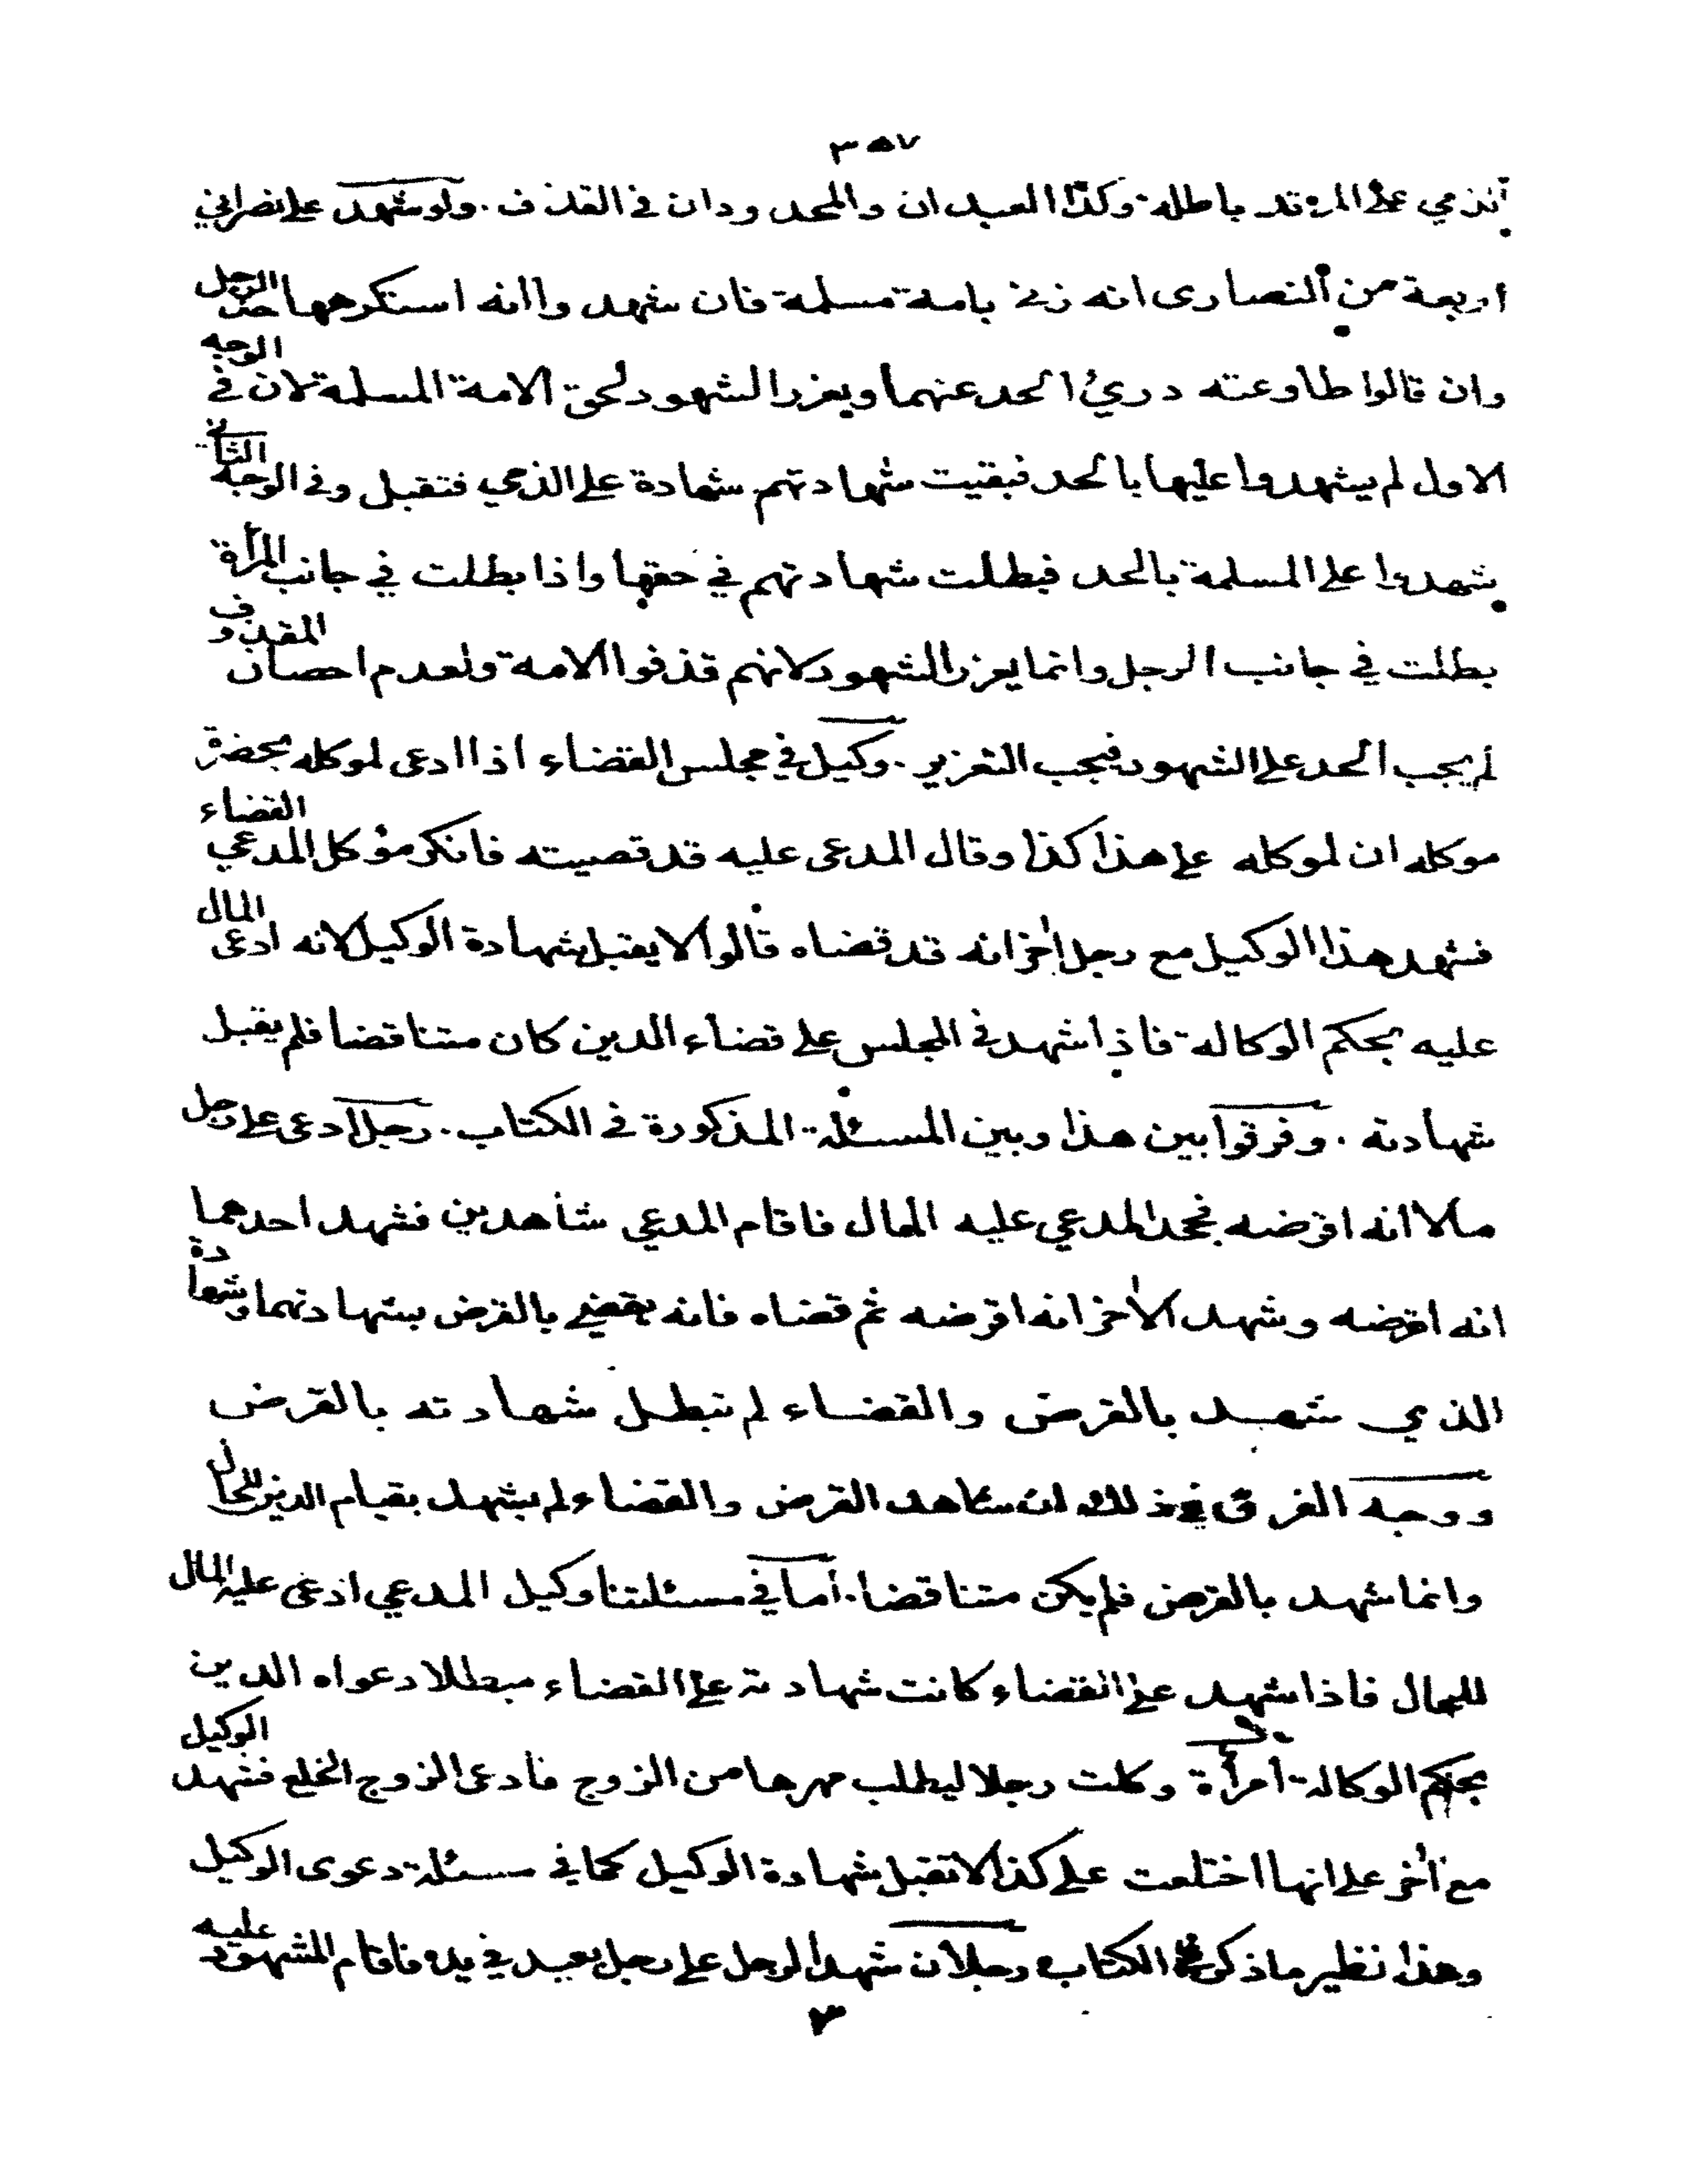 ٣٥٧
الذمي على المرتد باطلة. وكذا العبدان والمحدودان في القذف. ولو شهد على نصراني
أربعة من النصارى انه زنى بامة مسلمة فان شهدوا انه استكرهها حد الرجل
وان قالوا طاوعته درئ الحد عنهما ويعزر الشهود لحق الامة المسلمة لان في الوجه
الاول لم يشهدوا عليها بالحد فبقيت شهادتهم شهادة على الذمي فتقبل وفي الوجه الثاني
شهدوا على المسلمة بالحد فبطلت شهادتهم في حقها واذا بطلت في جانب المرأة
بطلت في جانب الرجل وانما يعزر الشهود لانهم قذفوا الامة ولعدم احصان المقذوف
لم يجب الحد على الشهود فيجب التعزير. وكيل في مجلس القضاء اذا ادعى لموكله بحضرة
موكله ان لموكله على هذا كذا وقال المدعى عليه قد قضيته فانكر موكل المدعي القضاء
فشهد هذا الوكيل مع رجل اخر انه قد قضاه قالوا لا يقبل شهادة الوكيل لانه ادعى المال
عليه بحكم الوكالة فاذا شهد في المجلس على قضاء الدين كان متناقضا فلم يقبل
شهادته. وفرقوا بين هذا وبين المسئلة المذكورة في الكتاب. رجل ادعى على رجل
مالا انه اقرضه فجحد المدعي عليه المال فاقام المدعي شاهدين فشهد احدهما
انه اقرضه وشهد الاخر انه اقرضه ثم قضاه فانه يقضي بالقرض بشهادتهما وشهادة
الذي شهد بالقرض والقضاء لم تبطل شهادته بالقرض
ووجه الفرق في ذلك ان شاهد القرض والقضاء لم يشهد بقيام الدين للحال
وانما شهد بالقرض فلم يكن متناقضا. أما في مسئلتنا وكيل المدعي ادعى عليه المال
للحال فاذا شهد على القضاء كانت شهادته على القضاء مبطلا دعواه الدين
بحكم الوكالة امرأة وكلت رجلا ليطلب مهرها من الزوج فادعى الزوج الخلع فشهد الوكيل
مع اخر على انها اختلعت على كذا لا تقبل شهادة الوكيل كما في مسئلة دعوى الوكيل
وهذا نظير ما ذكر في الكتاب رجلان شهدا لرجل على رجل بعبد في يده فاقام المشهود عليه